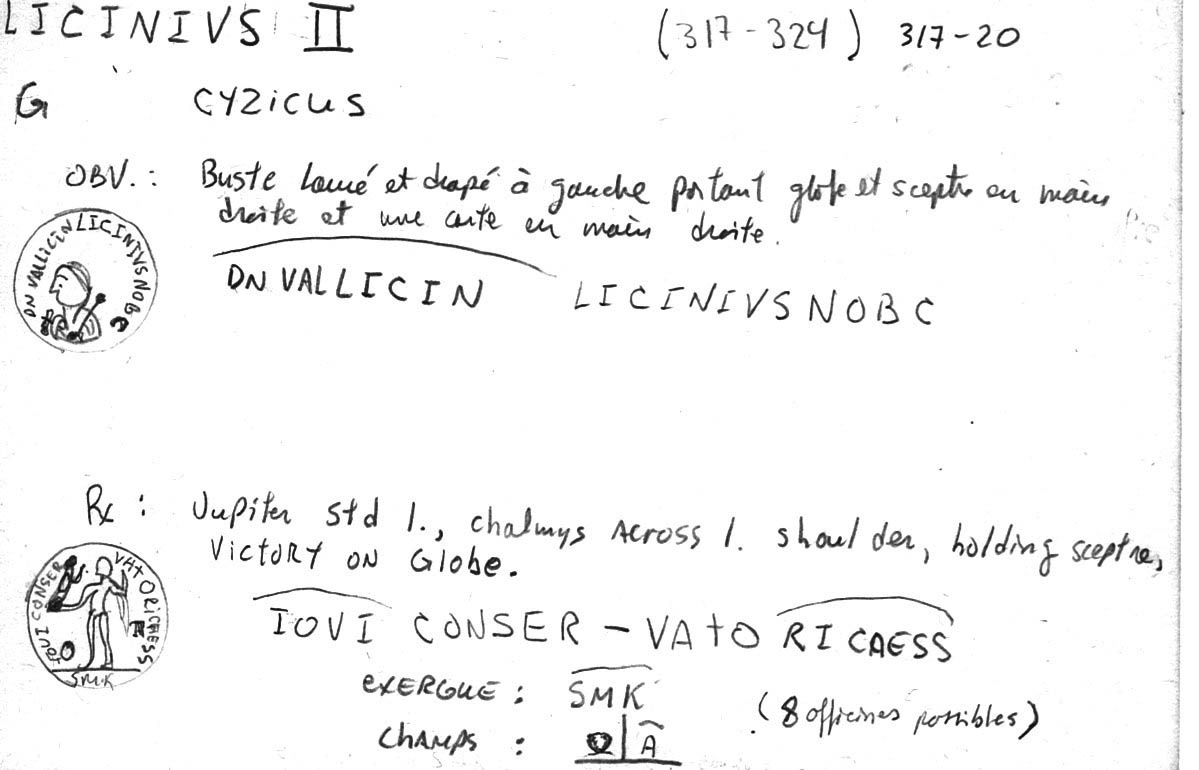 LICINIVS II (317-324) 317-20
G CYZicus
OBV.: Buste lauré et drapé à gauche portant globe et sceptre en main
droite et une carte en main droite.
DN VALLICIN LICINIVSNOBC
DN VALLICIN LICINIVSNOBC
Rx : Jupiter std l., chalmys Across l. shoulder, holding sceptre,
Victory on Globe.
IOVI CONSER - VATORICAESS
IOVI CONSER VATORICAESS
SMK
exERGUE : SMK (8 officines possibles)
CHAMPS : A